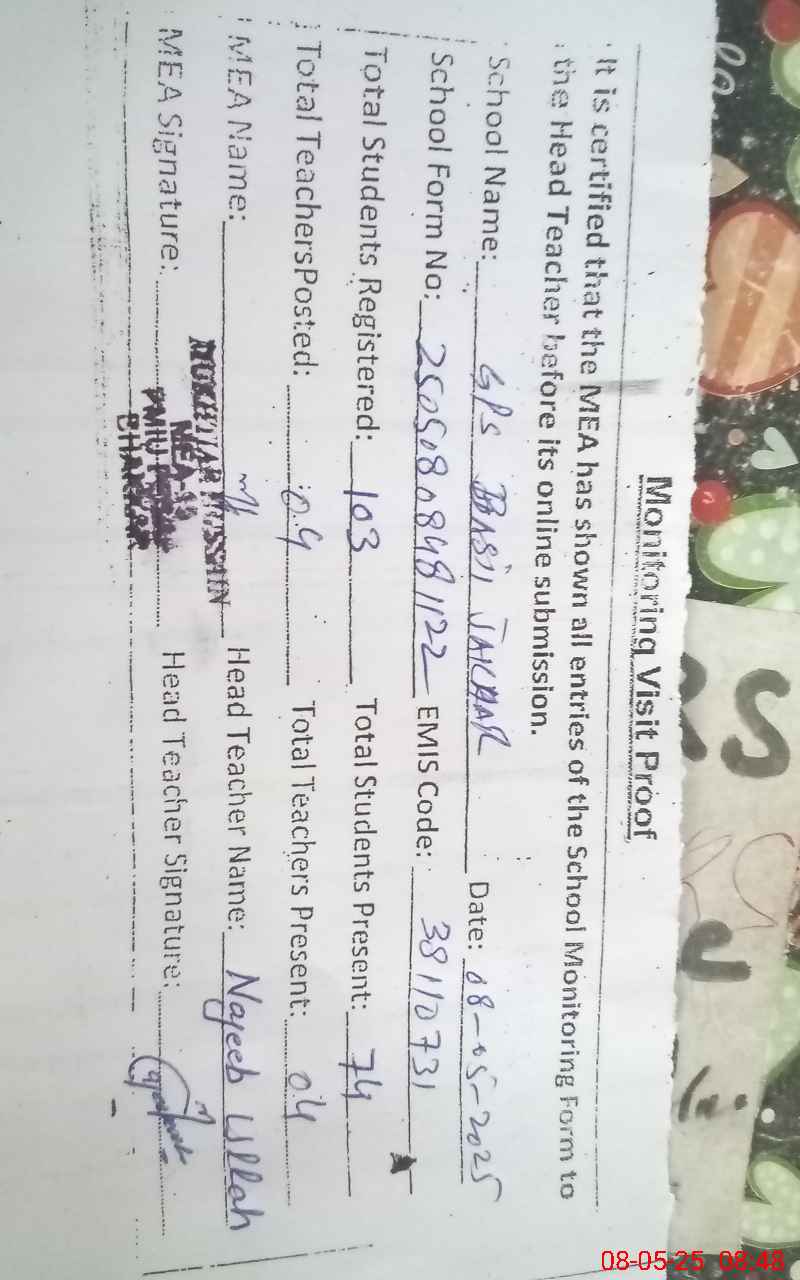 Monitoring Visit Proof
It is certified that the MEA has shown all entries of the School Monitoring Form to
the Head Teacher before its online submission.
School Name: GPS BASTI JAKHAR Date: 08-05-2025
School Form No: 25050808481122 EMIS Code: 38110731
Total Students Registered: 103 Total Students Present: 74
Total TeachersPosted: 04 Total Teachers Present: 04
MEA Name: MUKHTIAR HUSSAIN Head Teacher Name: Najeeb Ullah
MEA Signature: MEA-13 Head Teacher Signature:
PMIU
BHAKKAR
08-05-25 08:48